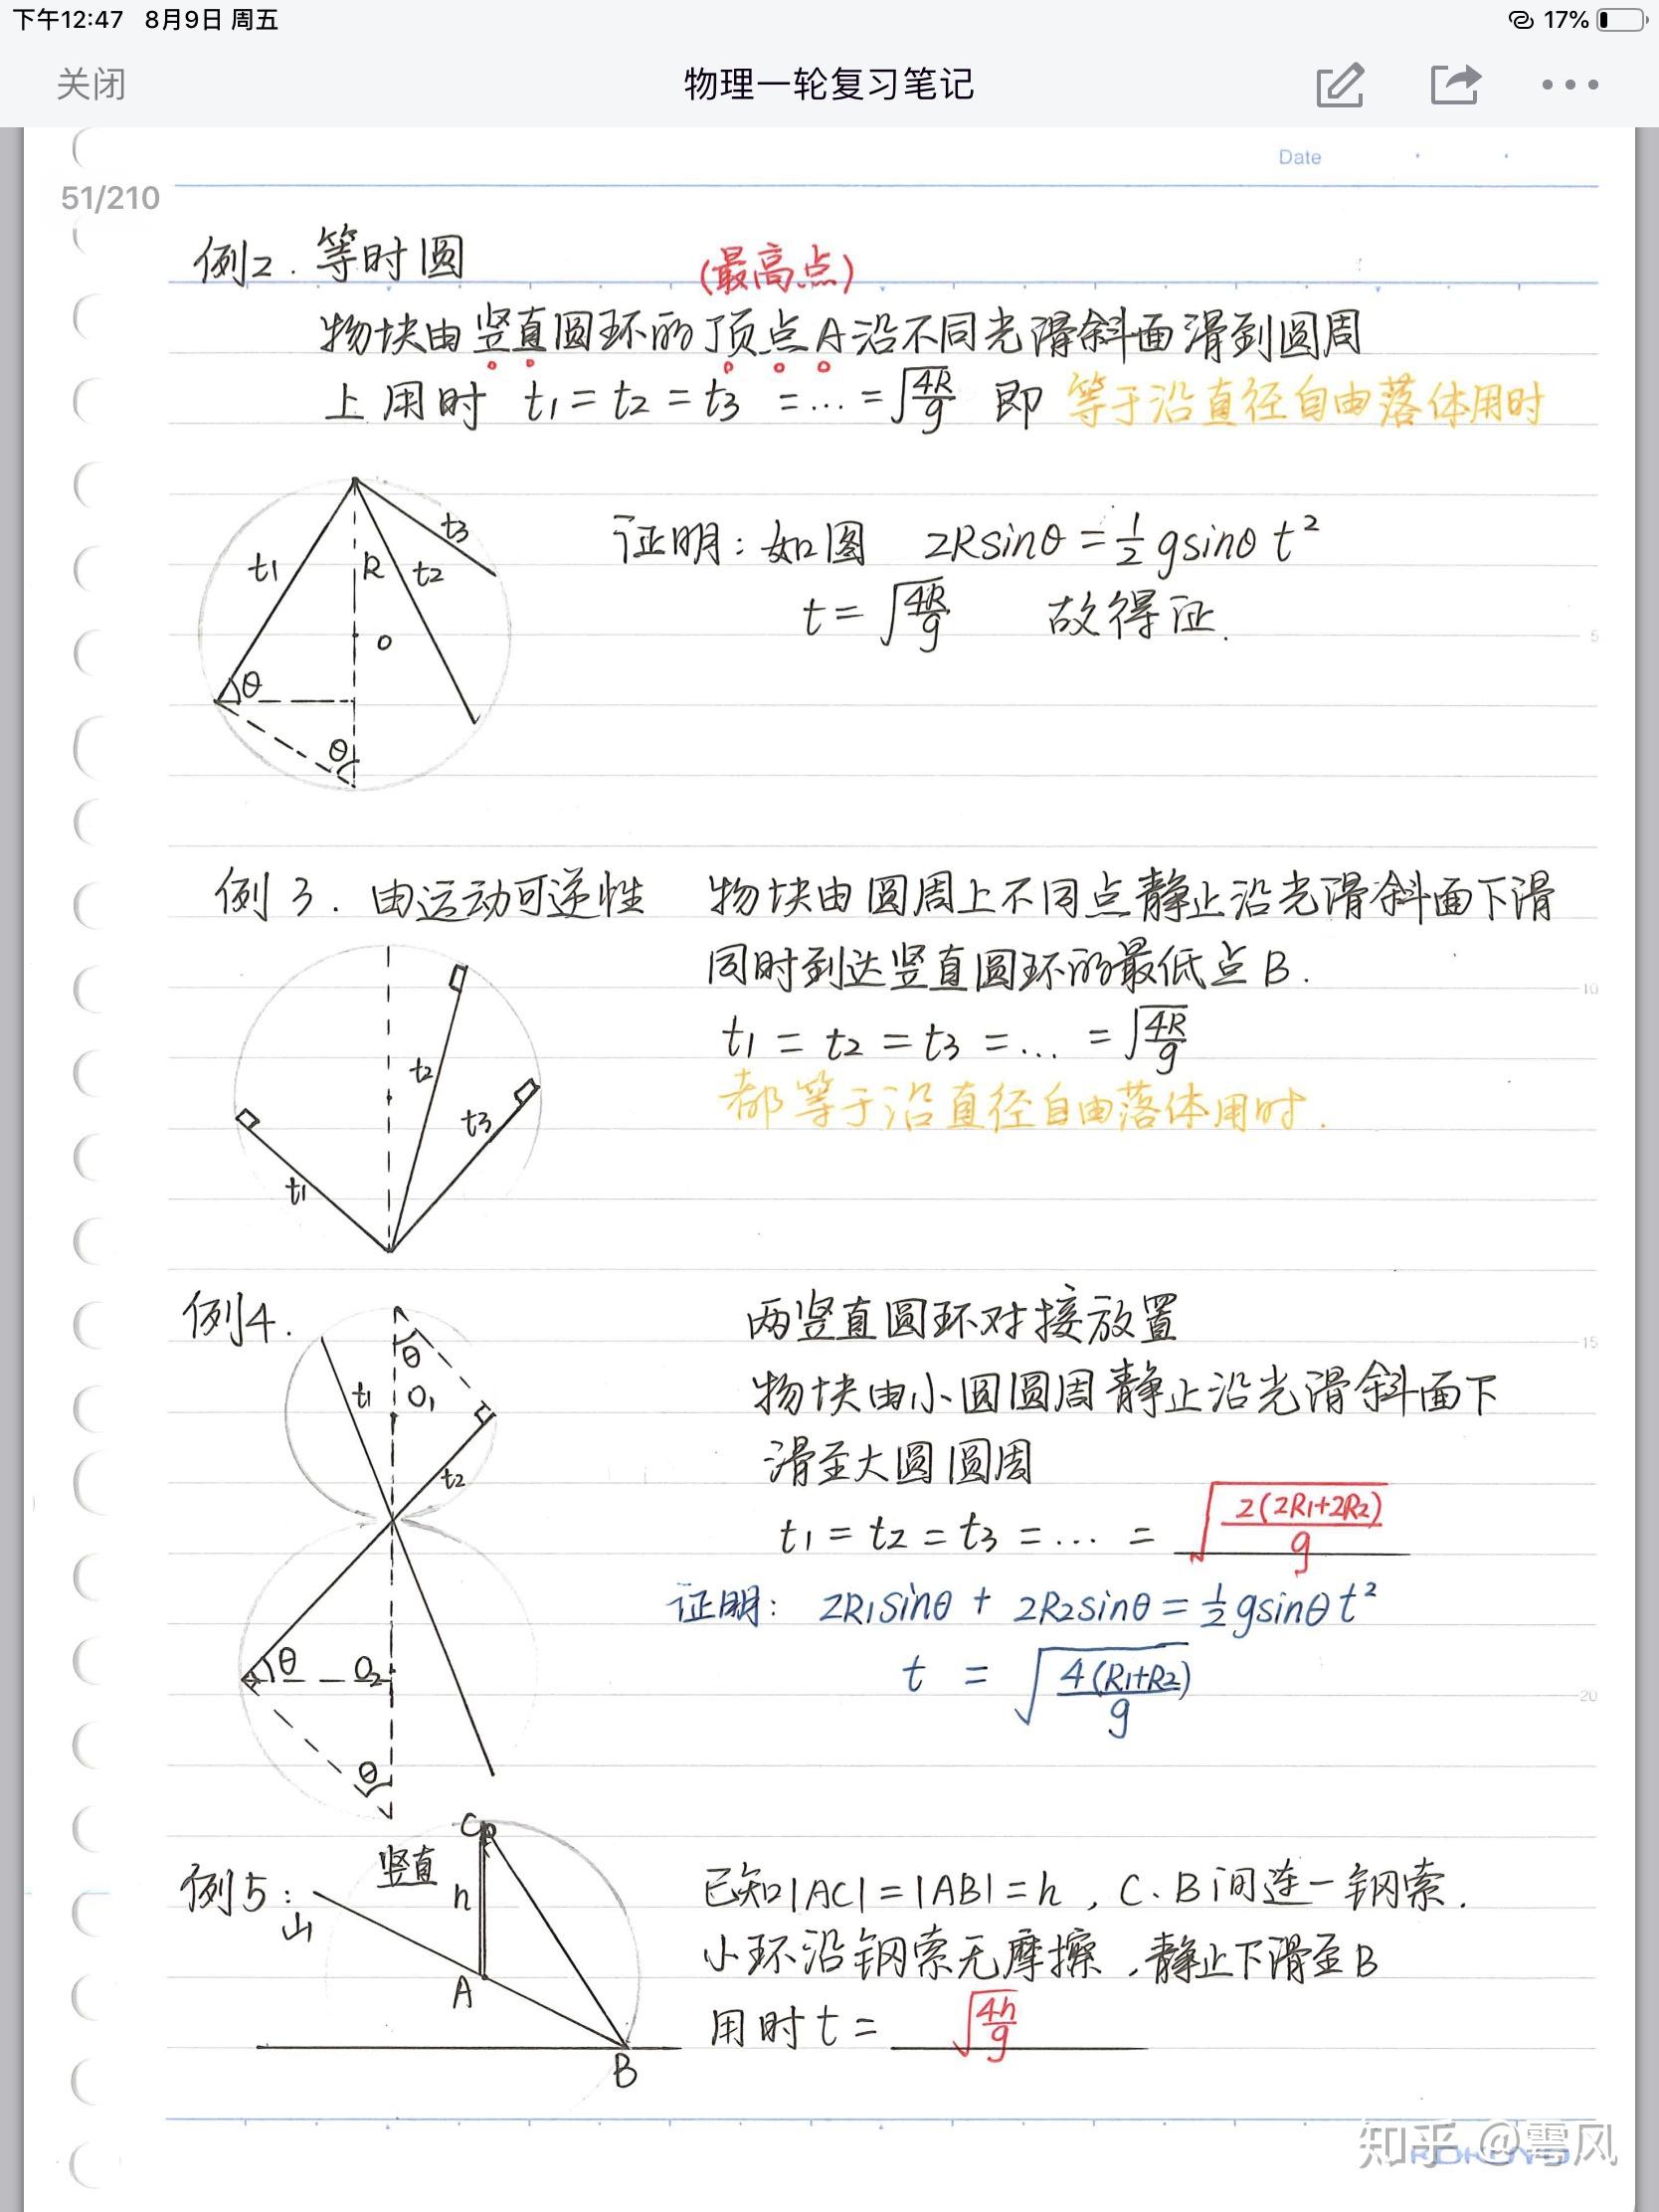 下午12:47 8月9日 周五 17%
关闭 物理一轮复习笔记
Date
51/210
例2. 等时圆
(最高点)
物块由竖直圆环的顶点A沿不同光滑斜面滑到圆周
上用时 t₁ = t₂ = t₃ = … = √(4R/g) 即 等于沿直径自由落体用时
t₁ R t₂ t₃
O
θ
θ
证明: 如图 2Rsinθ = ½ gsinθ t²
t = √(4R/g) 故得证.
5
例3. 由运动可逆性 物块由圆周上不同点静止沿光滑斜面下滑
同时到达竖直圆环的最低点B.
10
t₁ = t₂ = t₃ = … = √(4R/g)
都等于沿直径自由落体用时.
t₂
t₃
t₁
例4. 两竖直圆环对接放置
15
物块由小圆圆周静止沿光滑斜面下
滑至大圆圆周
t₁ = t₂ = t₃ = … = √(2(2R₁+2R₂)/g)
证明: 2R₁sinθ + 2R₂sinθ = ½ gsinθ t²
t = √(4(R₁+R₂)/g)
20
θ
t₁ O₁
t₂
θ O₂
θ
例5: 已知|AC| = |AB| = h , C、B间连一钢索.
小环沿钢索无摩擦,静止下滑至B
用时 t = √(4h/g)
C
竖直
h
山
A
B
知乎 @雩风